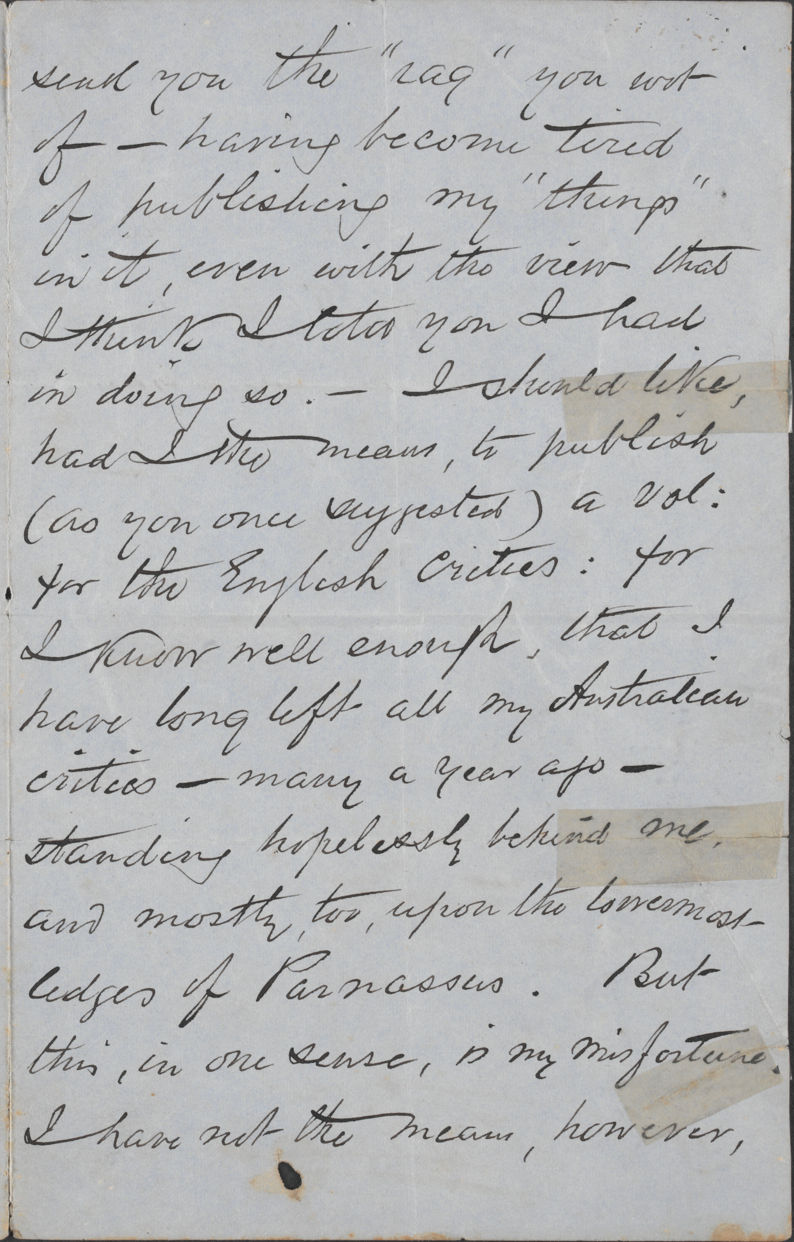 send you the "rag" you wot
of — having become tired
of publishing my "things"
in it, even with the view that
I think I told you I had
in doing so. — I should like,
had I the means, to publish
(as you once suggested) a vol:
for the English Critics: for
I know well enough, that I
have long left all my Australian
critics — many a year ago —
standing hopelessly behind me.
and mostly, too, upon the lowermost
ledges of Parnassus. But
this, in one sense, is my misfortune.
I have not the means, however,